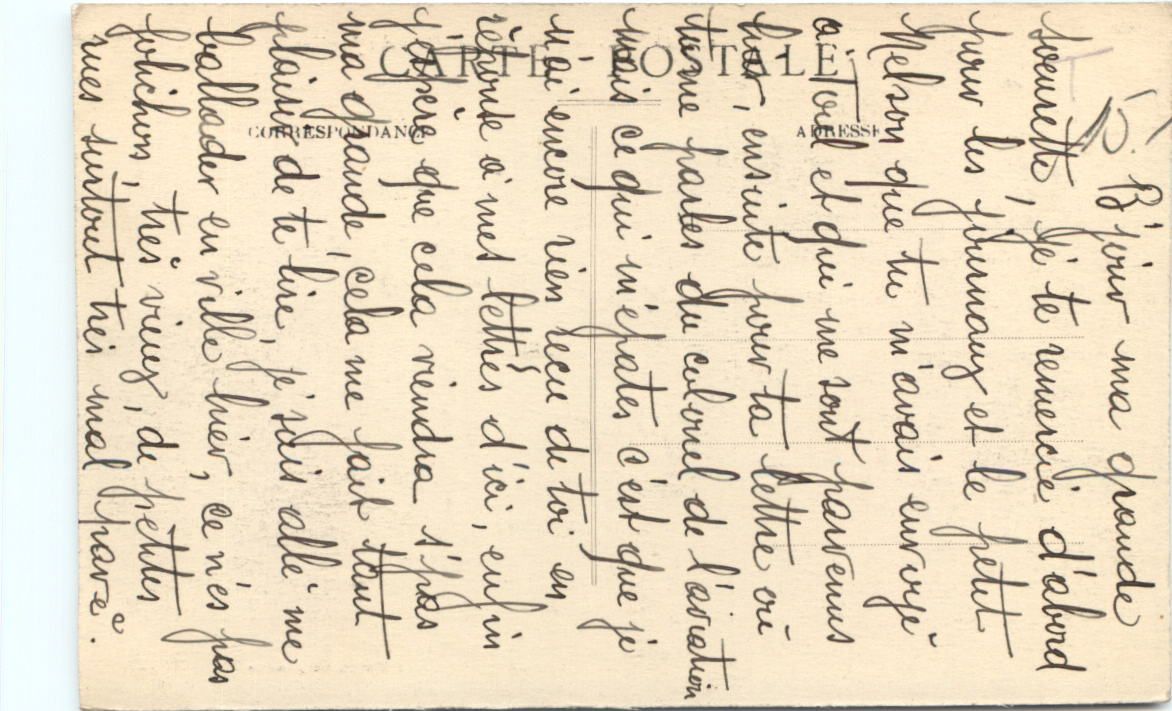 CARTE POSTALE
CORRESPONDANCE
ADRESSE
B'jour ma grande
soeurette, je te remercie d'abord
pour les journaux et le petit
Nelson que tu m'avais envoyé
à Toul et qui me sont parvenus
hier, ensuite pour ta lettre où
tu me parles du colonel de l'aviation
mais ce qui m'épates c'est que je
n'ai encore rien reçu de toi en
réponse à mes lettres d'ici, enfin
j'éspère que cela viendra s'pas
ma grande, cela me fait tant
plaisir de te lire, je suis allé me
ballader en ville hier, ce n'es pas
folichon, très vieux, de petites
rues surtout très mal pavé.